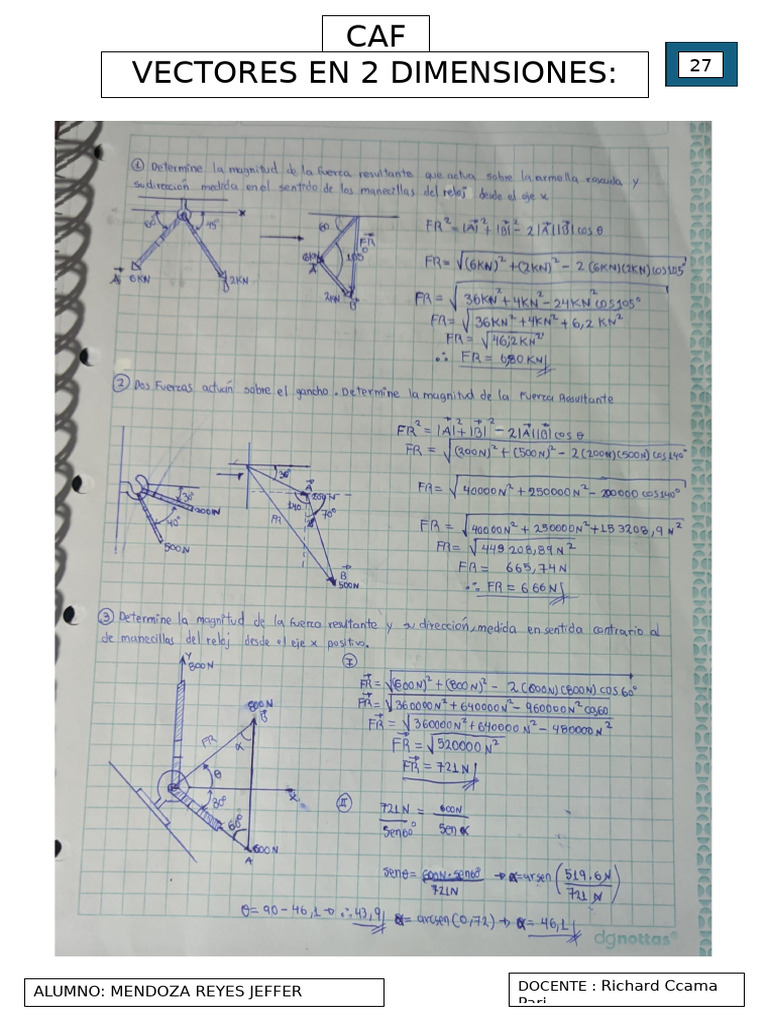 CAF
VECTORES EN 2 DIMENSIONES:
27
① Determine la magnitud de la fuerza resultante que actua sobre la armella roscada y
su dirección medida en el sentido de las manecillas del reloj desde el eje x
60° 45° x
A 6KN 2KN
60
FR
6KN
A
2KN B
FR² = |A|² + |B|² - 2|A||B| cos θ
FR = √(6KN)² + (2KN)² - 2(6KN)(2KN) cos 105°
FR = √36KN² + 4KN² - 24KN² cos 105°
FR = √36KN² + 4KN² + 6,2 KN²
FR = √46,2KN²
∴ FR = 6,80 KN
② Dos Fuerzas actuán sobre el gancho. Determine la magnitud de la Fuerza Resultante
30°
200N
40°
500N
30°
A
200N
140 70°
FR
B
500N
FR² = |A|² + |B|² - 2|A||B| cos θ
FR = √(200N)² + (500N)² - 2(200N)(500N) cos 140°
FR = √40000N² + 250000N² - 200000 cos 140°
FR = √40000N² + 250000N² + 153208,9 N²
FR = √443208,89N²
FR = 665,74N
∴ FR = 666N
③ Determine la magnitud de la fuerza resultante y su dirección, medida en sentida contrario al
de manecillas del reloj desde el eje x positivo.
Y
800N
800N
B
FR α
θ
30° x
60°
600N
A
Ⅰ
FR = √(600N)² + (800N)² - 2(600N)(800N) cos 60°
FR = √360000N² + 640000N² - 960000N² cos 60
FR = √360000N² + 640000N² - 480000N²
FR = √520000N²
FR = 721N
Ⅱ
721N = 600N
sen60° sen α
senθ = 600N·sen60° → α=arsen (519,6N
721N 721 N)
θ = 90 - 46,1 → ∴ 43,9 α = arcsen (0,72) → α = 46,1
dgnottas
ALUMNO: MENDOZA REYES JEFFER
DOCENTE : Richard Ccama
Pari